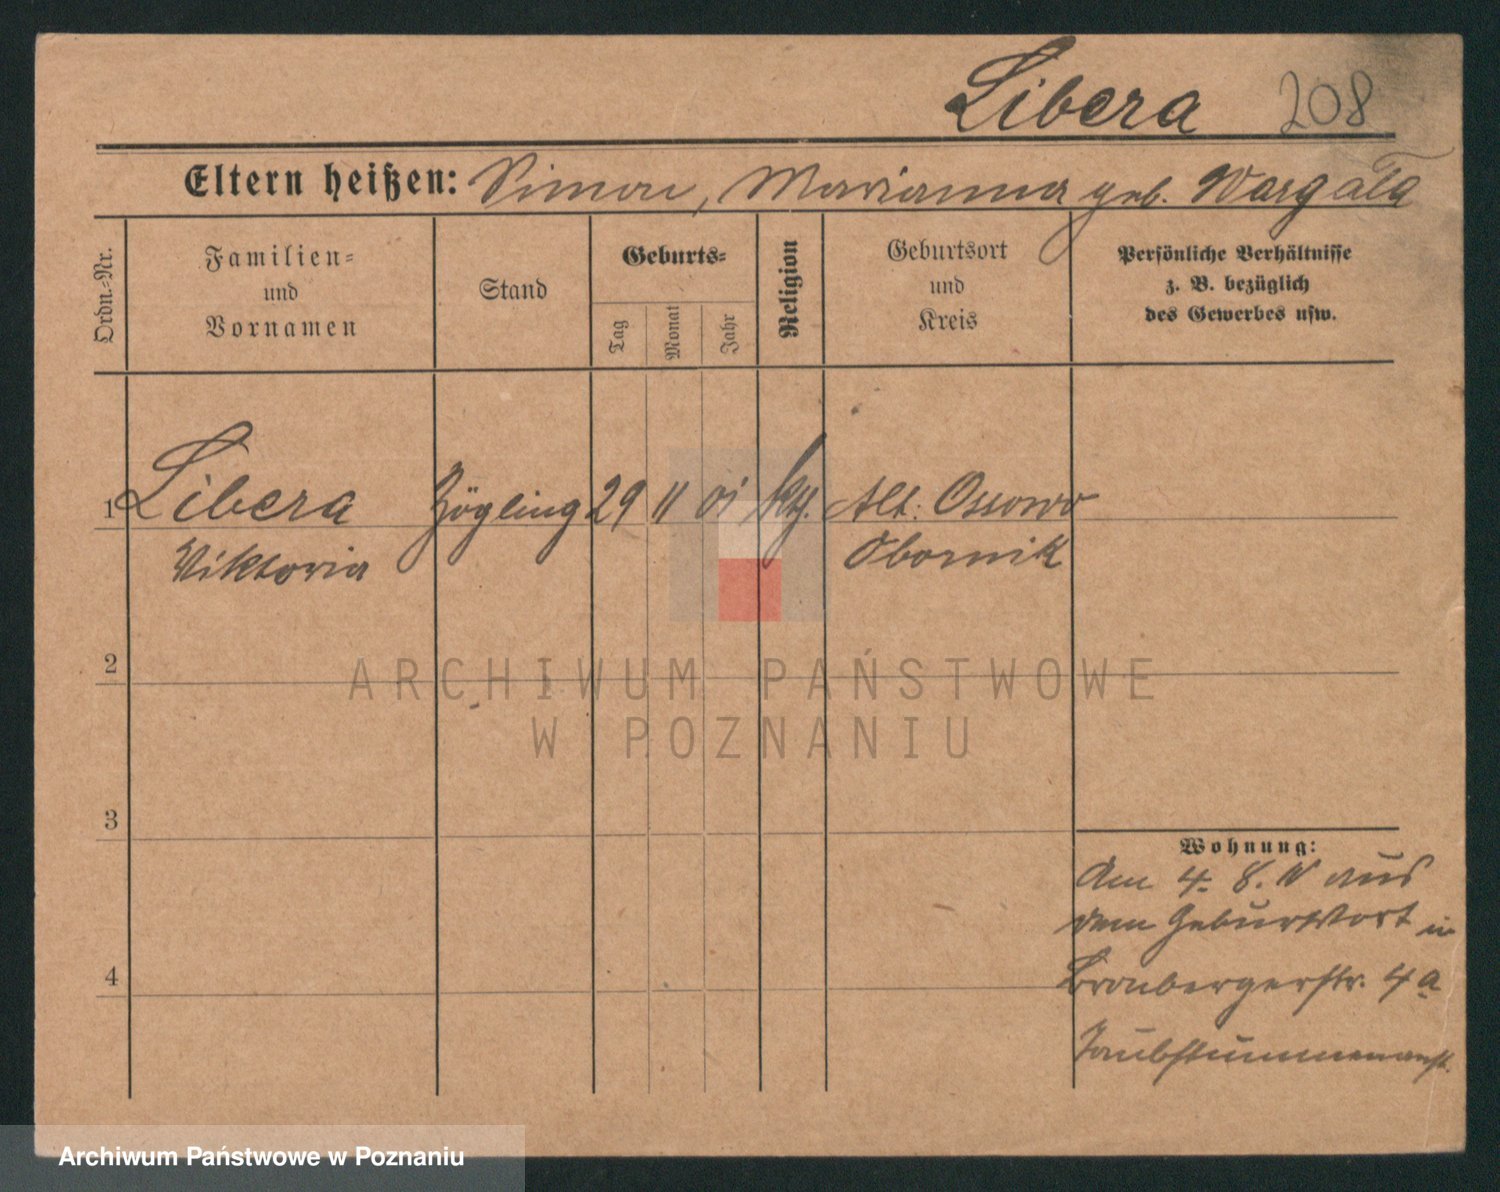 Libera 208
Eltern heißen: Simon, Marianna geb. Wargała
Ordn.-Nr.
Familien-
und
Vornamen
Stand
Geburts-
Tag
Monat
Jahr
Religion
Geburtsort
und
Kreis
Persönliche Verhältnisse
z. B. bezüglich
des Gewerbes usw.
1 Libera Zögling 29 11 01 kth. Alt: Ossowo
Viktoria Obornik
2
ARCHIWUM PAŃSTWOWE
W POZNANIU
3
Wohnung:
Am 4. 8. 10 aus
dem Geburtsort in
Brombergerstr. 4a
4
Taubstummenanst.
Archiwum Państwowe w Poznaniu